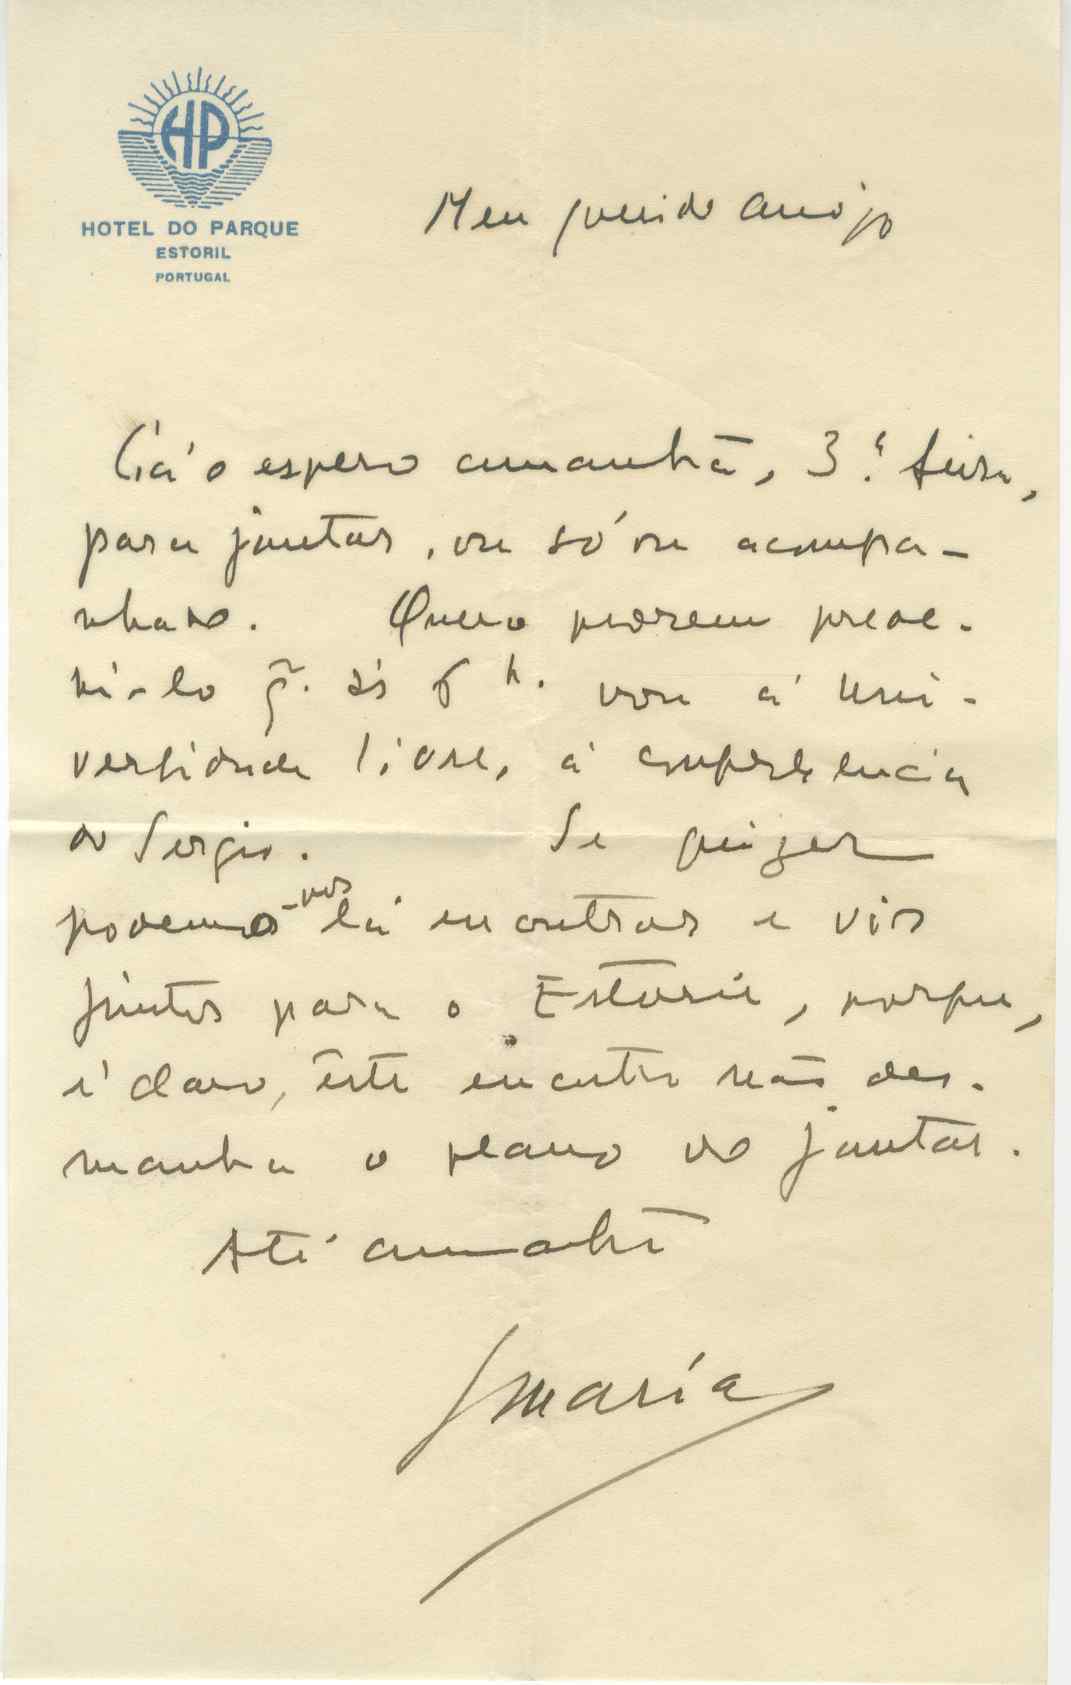 HP
HOTEL DO PARQUE
ESTORIL
PORTUGAL
Meu querido amigo
Cá o espero amanhã, 3.ª feira,
para jantar, ou só ou acompa-
nhado. Quero porem preve-
ni-lo q. ás 6 h. vou á Uni-
versidade Livre, á conferencia
do Sergio. Se quizer
podemos-nos lá encontrar e vir
juntos para o Estoril, porque,
é claro, êste encontro não des-
mancha o plano do jantar.
Até amanhã